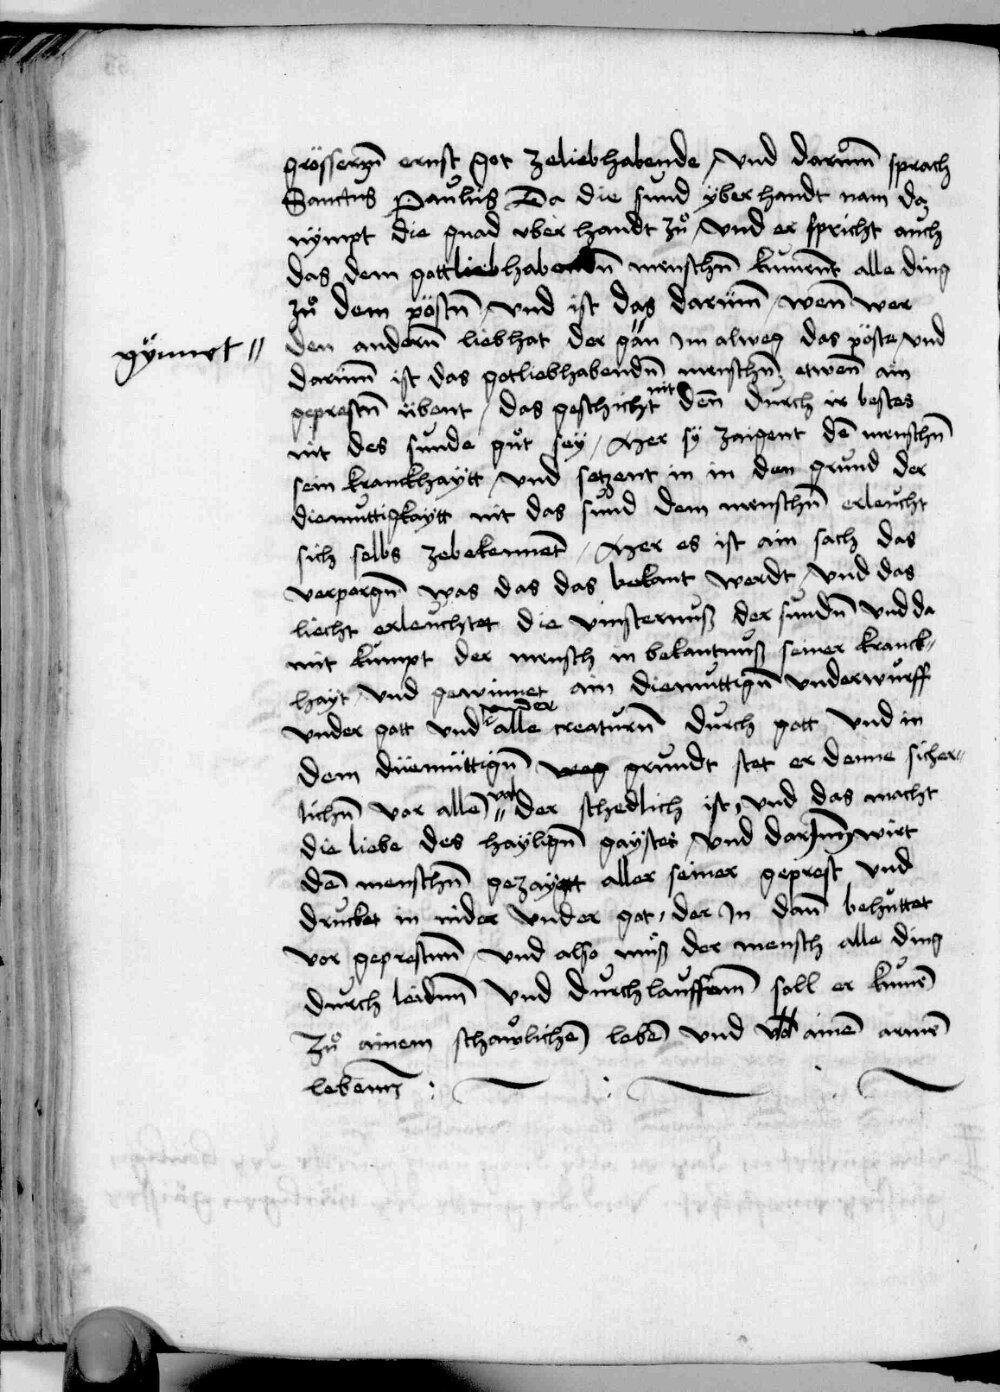 grösserm̄ ernst got zeliebhabende / vnd darumm̄ sprach
Sanctus Paulus Da die sund ÿber handt nam da
nÿmpt die gnad vber handt zů / vnd er spricht auch
das dem gottliebhabendn̄ menschn̄ kument alle ding
zů dem pöstn̄ / vnd ist das darumm̄ / wenn̄ wer
den andern̄ liebhat der gan Im alweg das pöste / vnd
gÿnnet //
darumm̄ ist das gotliebhabendn̄ menschn̄ etwenn̄ ain
geprestn̄ übent / das geschicht nit denn̄ durch ir bestes
nit des sunde gůt sey / Mer sÿ zaigent dē menschn̄
sein kranckhaÿtt / vnd setzent in in den grund der
diemuttigkaÿtt nit das sund dem menschn̄ erleucht
sich selbs zebekennet / Mer es ist ain sach das
verporgn̄ was das das bekant werdt / vnd das
liecht erleuchtet die vinsternuß der sundn̄ vnd da
mit kumpt der mensch in bekantnuß seiner kranck-
haÿt / vnd gewinnet ain diemuttign̄ vnderwurff
vnder gott vnd vnder alle creaturn̄ durch gott vnd in
dem diiemüttign̄ grundt stet er denne sicher-
lichn̄ vor allē // der schedlich ist, vnd das macht
die liebe des haÿlign̄ gaÿstes / vnd darumm̄ wirt
dē menschn̄ gezaÿgtt aller seiner geprest vnd
drucket in nider vnder got, der In dann̄ behuttet
vor geprestnn̄ / vnd also muß der mensch alle ding
durch leidnn̄ vnd durchlauffenn̄ soll er kumē
Zů ainem schawlichē lebē vnd ainē armē
lebenns